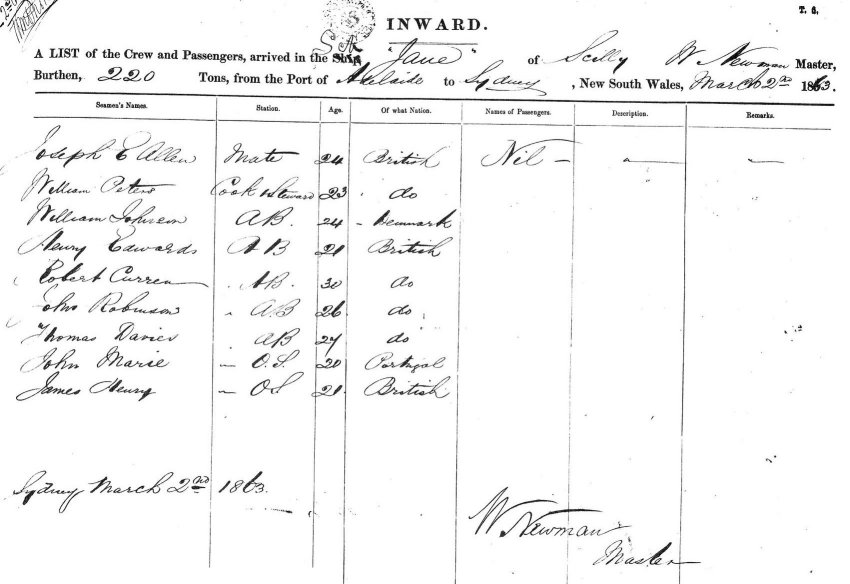 T. 6.
INWARD.
A LIST of the Crew and Passengers, arrived in the Ship "Jane" of Scilly W Newman Master,
Burthen, 220 Tons, from the Port of Adelaide to Sydney, New South Wales, March 2nd 1863.
Seamen's Names. Station. Age. Of what Nation. Names of Passengers. Description. Remarks.
Joseph C Allen Mate 24 British Nil — — —
William Peters Cook & Steward 23 do
William Johnson AB. 24 - Denmark
Henry Edwards AB 21 British
Robert Curren AB. 30 do
John Robinson AB 26 do
Thomas Davies AB 27 do
John Marie — O.S. 20 Portugal
James Henry — OS 21 British
Sydney March 2nd 1863.
W Newman
Master